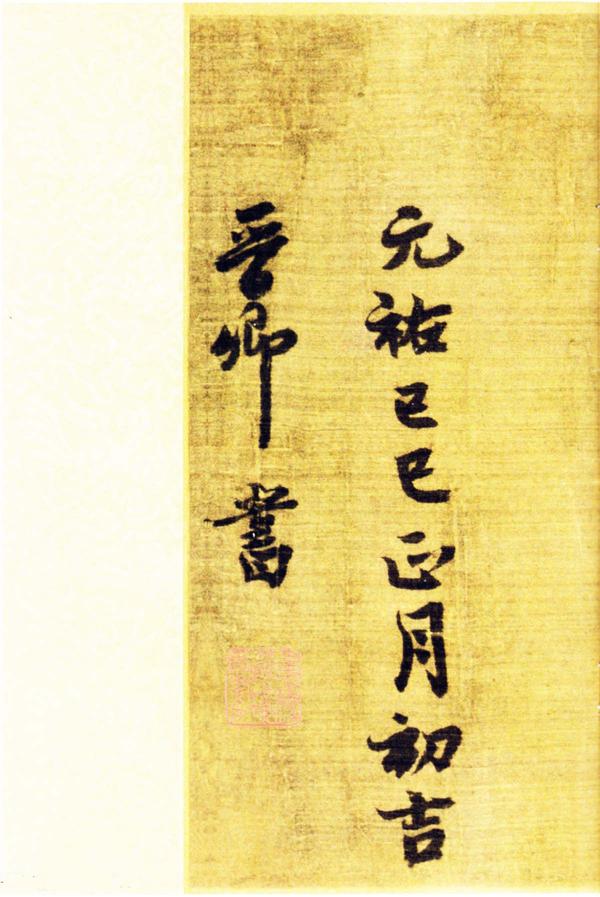 元祐己巳正月初吉
晋卿書